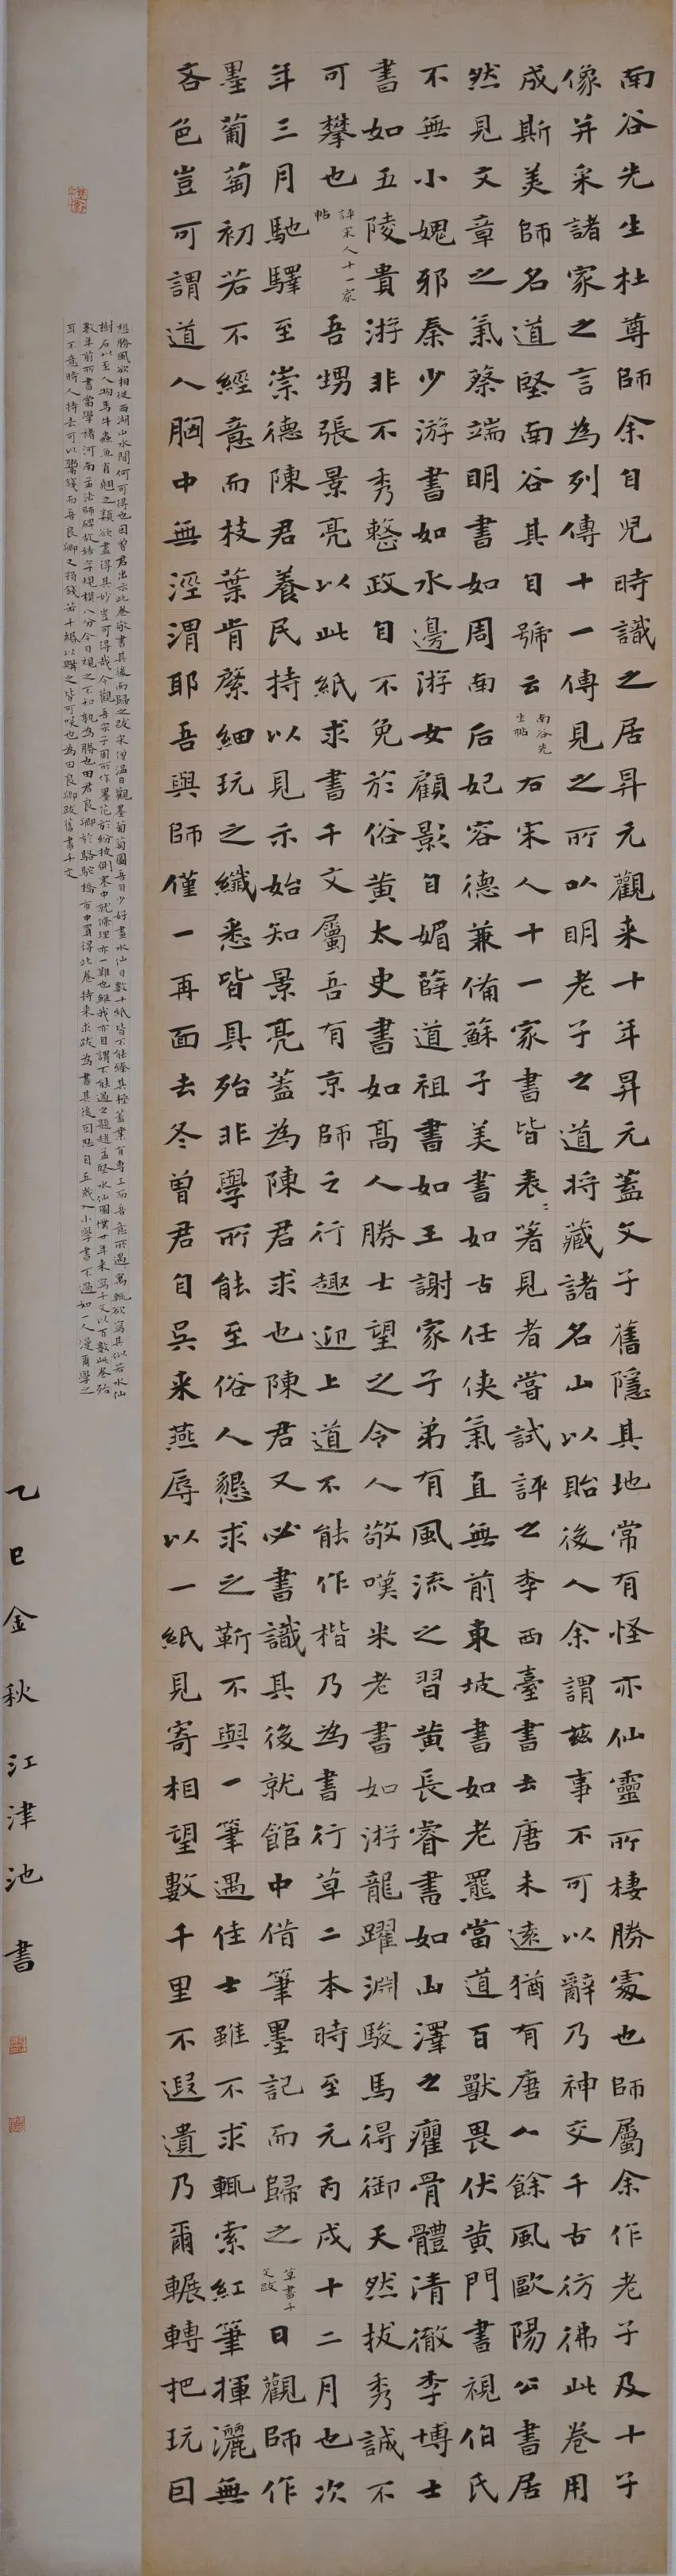 南谷先生杜尊師余自児時識之居昇元觀来十年昇元蓋文子舊隱其地常有怪亦仙靈所棲勝處也師屬余作老子及十子
像并采諸家之言為列傳十一傳見之所以明老子之道將藏諸名山以貽後人余謂茲事不可以辭乃神交千古彷彿此卷用
成斯美師名道堅南谷其自號云南谷先生帖右宋人十一家書皆表〻箸見者嘗試評之李西臺書去唐未遠猶有唐人餘風歐陽公書居
然見文章之氣蔡端明書如周南后妃容德兼備蘇子美書如古任俠氣直無前東坡書如老羆當道百獸畏伏黄門書視伯氏
不無小媿邪秦少游書如水邊游女顧影自媚薛道祖書如王謝家子弟有風流之習黄長睿書如山澤之癯骨體清徹李博士
書如五陵貴游非不秀整政自不免於俗黄太史書如高人勝士望之令人敬嘆米老書如游龍躍淵駿馬得御天然拔秀誠不
可攀也評宋人十一家帖吾甥張景亮以此紙求書千文屬吾有京師之行趣迎上道不能作楷乃為書行草二本時至元丙戌十二月也次
年三月馳驛至崇德陳君養民持以見示始知景亮蓋為陳君求也陳君又必書識其後就館中借筆墨記而歸之草書千文跋日觀師作
墨葡萄初若不經意而枝葉肯綮細玩之纖悉皆具殆非學所能至俗人懇求之靳不與一筆遇佳士雖不求輒索紅筆揮灑無
吝色豈可謂道人胸中無涇渭耶吾與師僅一再面去冬曾君自吳来燕辱以一紙見寄相望數千里不遐遺乃爾輾轉把玩囙
想勝風欲相從西湖山水間何可得也因曾君出示此卷敬書其後而歸之跋宋僧温日觀墨葡萄圖吾自少好畫水仙日數十紙皆不能臻其極蓋業有專工而吾意所遇輒欲寫其似若水仙
樹石以至人物馬牛蟲魚肖翹之類欲盡得其妙豈可得哉今觀吾宗子固所作墨花於紛披側塞中就條理亦一難也雖我亦自謂不能過之題趙孟堅水仙圖僕廿年来寫千文以百數此卷殆
數年前所書當學褚河南孟法師碑故結字規模八分今日視之不知孰為勝也田君良卿於駱駝橋市中買得此卷持来求跋為書其後因思自五歲入小學書不過如一人漫爾學之
耳不意時人持去可以鬻錢而吾良卿又捐錢若干緡以購之皆可咲也為田良卿跋舊書千文
乙巳金秋江津池書